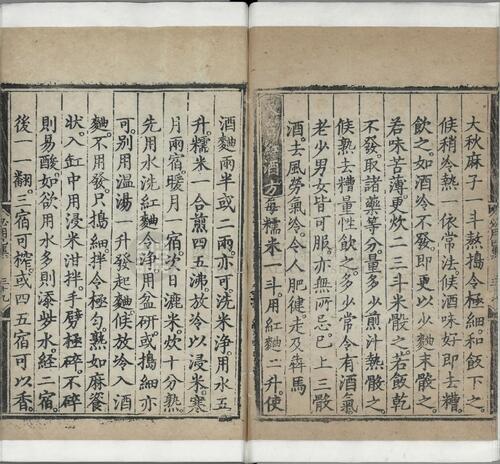 大秋麻子一斗熟擣令細和飯下之。
候稍冷熱一依常法。候酒味好即去糟
飲之。如酒冷不發。即更以少麵末骰之。
若味苦薄。更炊二三斗米骰之。若飯乾
不發。取諸藥等分量多少煎汁熱骰之。
候熟去糟。量性飲之。多少常令有酒氣。
老少男女皆可服。亦無所忌。已上三骰
酒。去風勞氣冷。令人肥健。走及犇馬
酒方每糯米一斗用紅麴二升。使
酒麴兩半或二兩。亦可洗米淨。用水五
升。糯米一合煎四五沸放冷以浸米。寒
月兩宿。暖月一宿。次日漉米炊十分熟。
先用水洗紅麴令淨。用盆研或擣細亦
可。別用溫湯 升發起麴。候放冷入酒
麴。不用發。只擣細拌令極勻。熟如麻餈
狀。入缸中用浸米泔拌。手擘極碎。不碎
則易酸。如欲用水多則添些水。經二宿。
後一一翻。三宿可榨。或四五宿可以香。